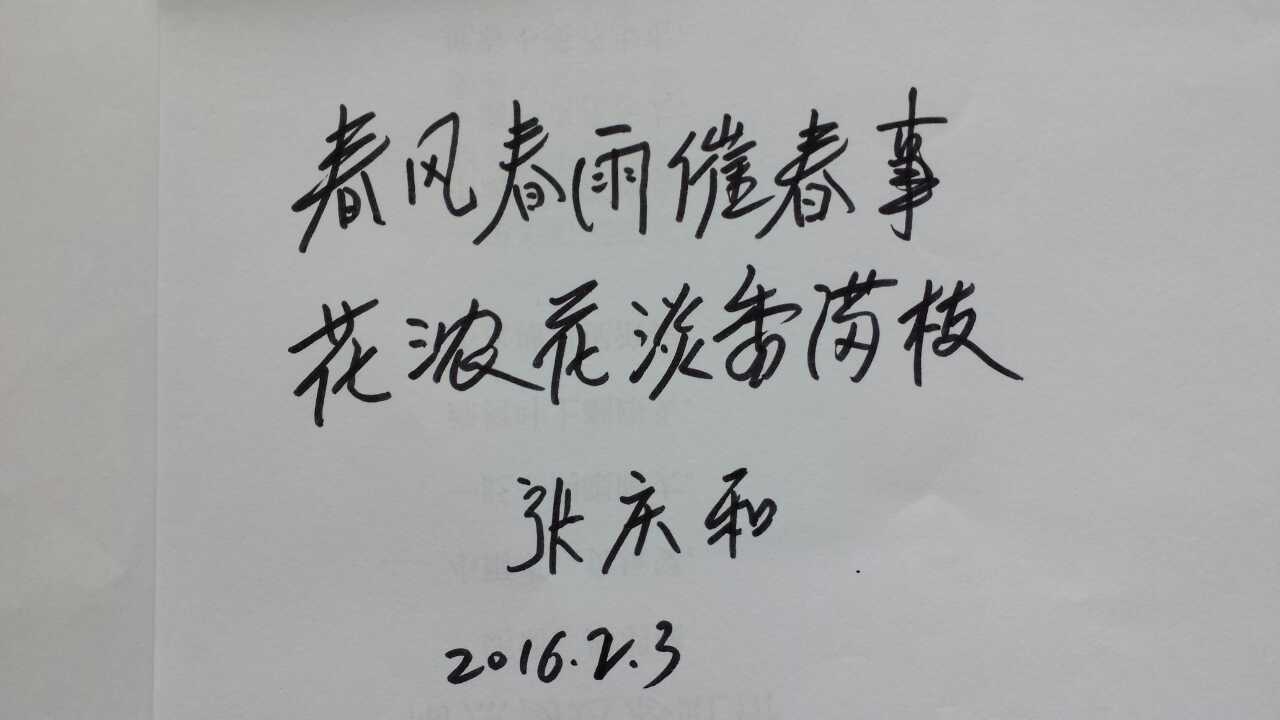 春风春雨催春事
花浓花淡香满枝
张庆和
2016.2.3